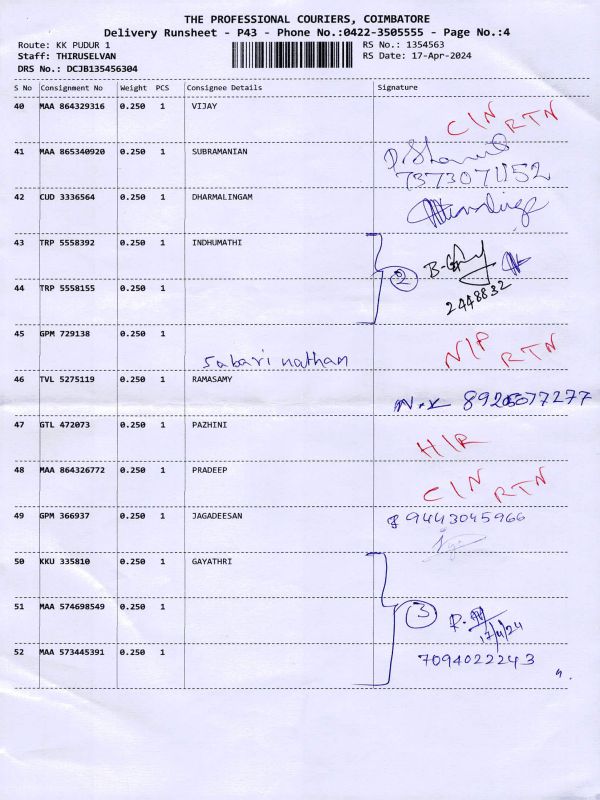 THE PROFESSIONAL COURIERS, COIMBATORE
Delivery Runsheet - P43 - Phone No.:0422-3505555 - Page No.:4
Route: KK PUDUR 1 RS No.: 1354563
Staff: THIRUSELVAN RS Date: 17-Apr-2024
DRS No.: DCJB135456304
S No Consignment No Weight PCS Consignee Details Signature
40 MAA 864329316 0.250 1 VIJAY
C/N RTN
41 MAA 865340920 0.250 1 SUBRAMANIAN
7373071152
42 CUD 3336564 0.250 1 DHARMALINGAM
43 TRP 5558392 0.250 1 INDHUMATHI
2
44 TRP 5558155 0.250 1
2448832
45 GPM 729138 0.250 1
Sabari nathan N/P RTN
46 TVL 5275119 0.250 1 RAMASAMY
47 GTL 472073 0.250 1 PAZHINI
H/R
48 MAA 864326772 0.250 1 PRADEEP
C/N RTN
49 GPM 366937 0.250 1 JAGADEESAN
9443045966
50 KKU 335810 0.250 1 GAYATHRI
51 MAA 574698549 0.250 1
3
17/4/24
52 MAA 573445391 0.250 1
7094022243